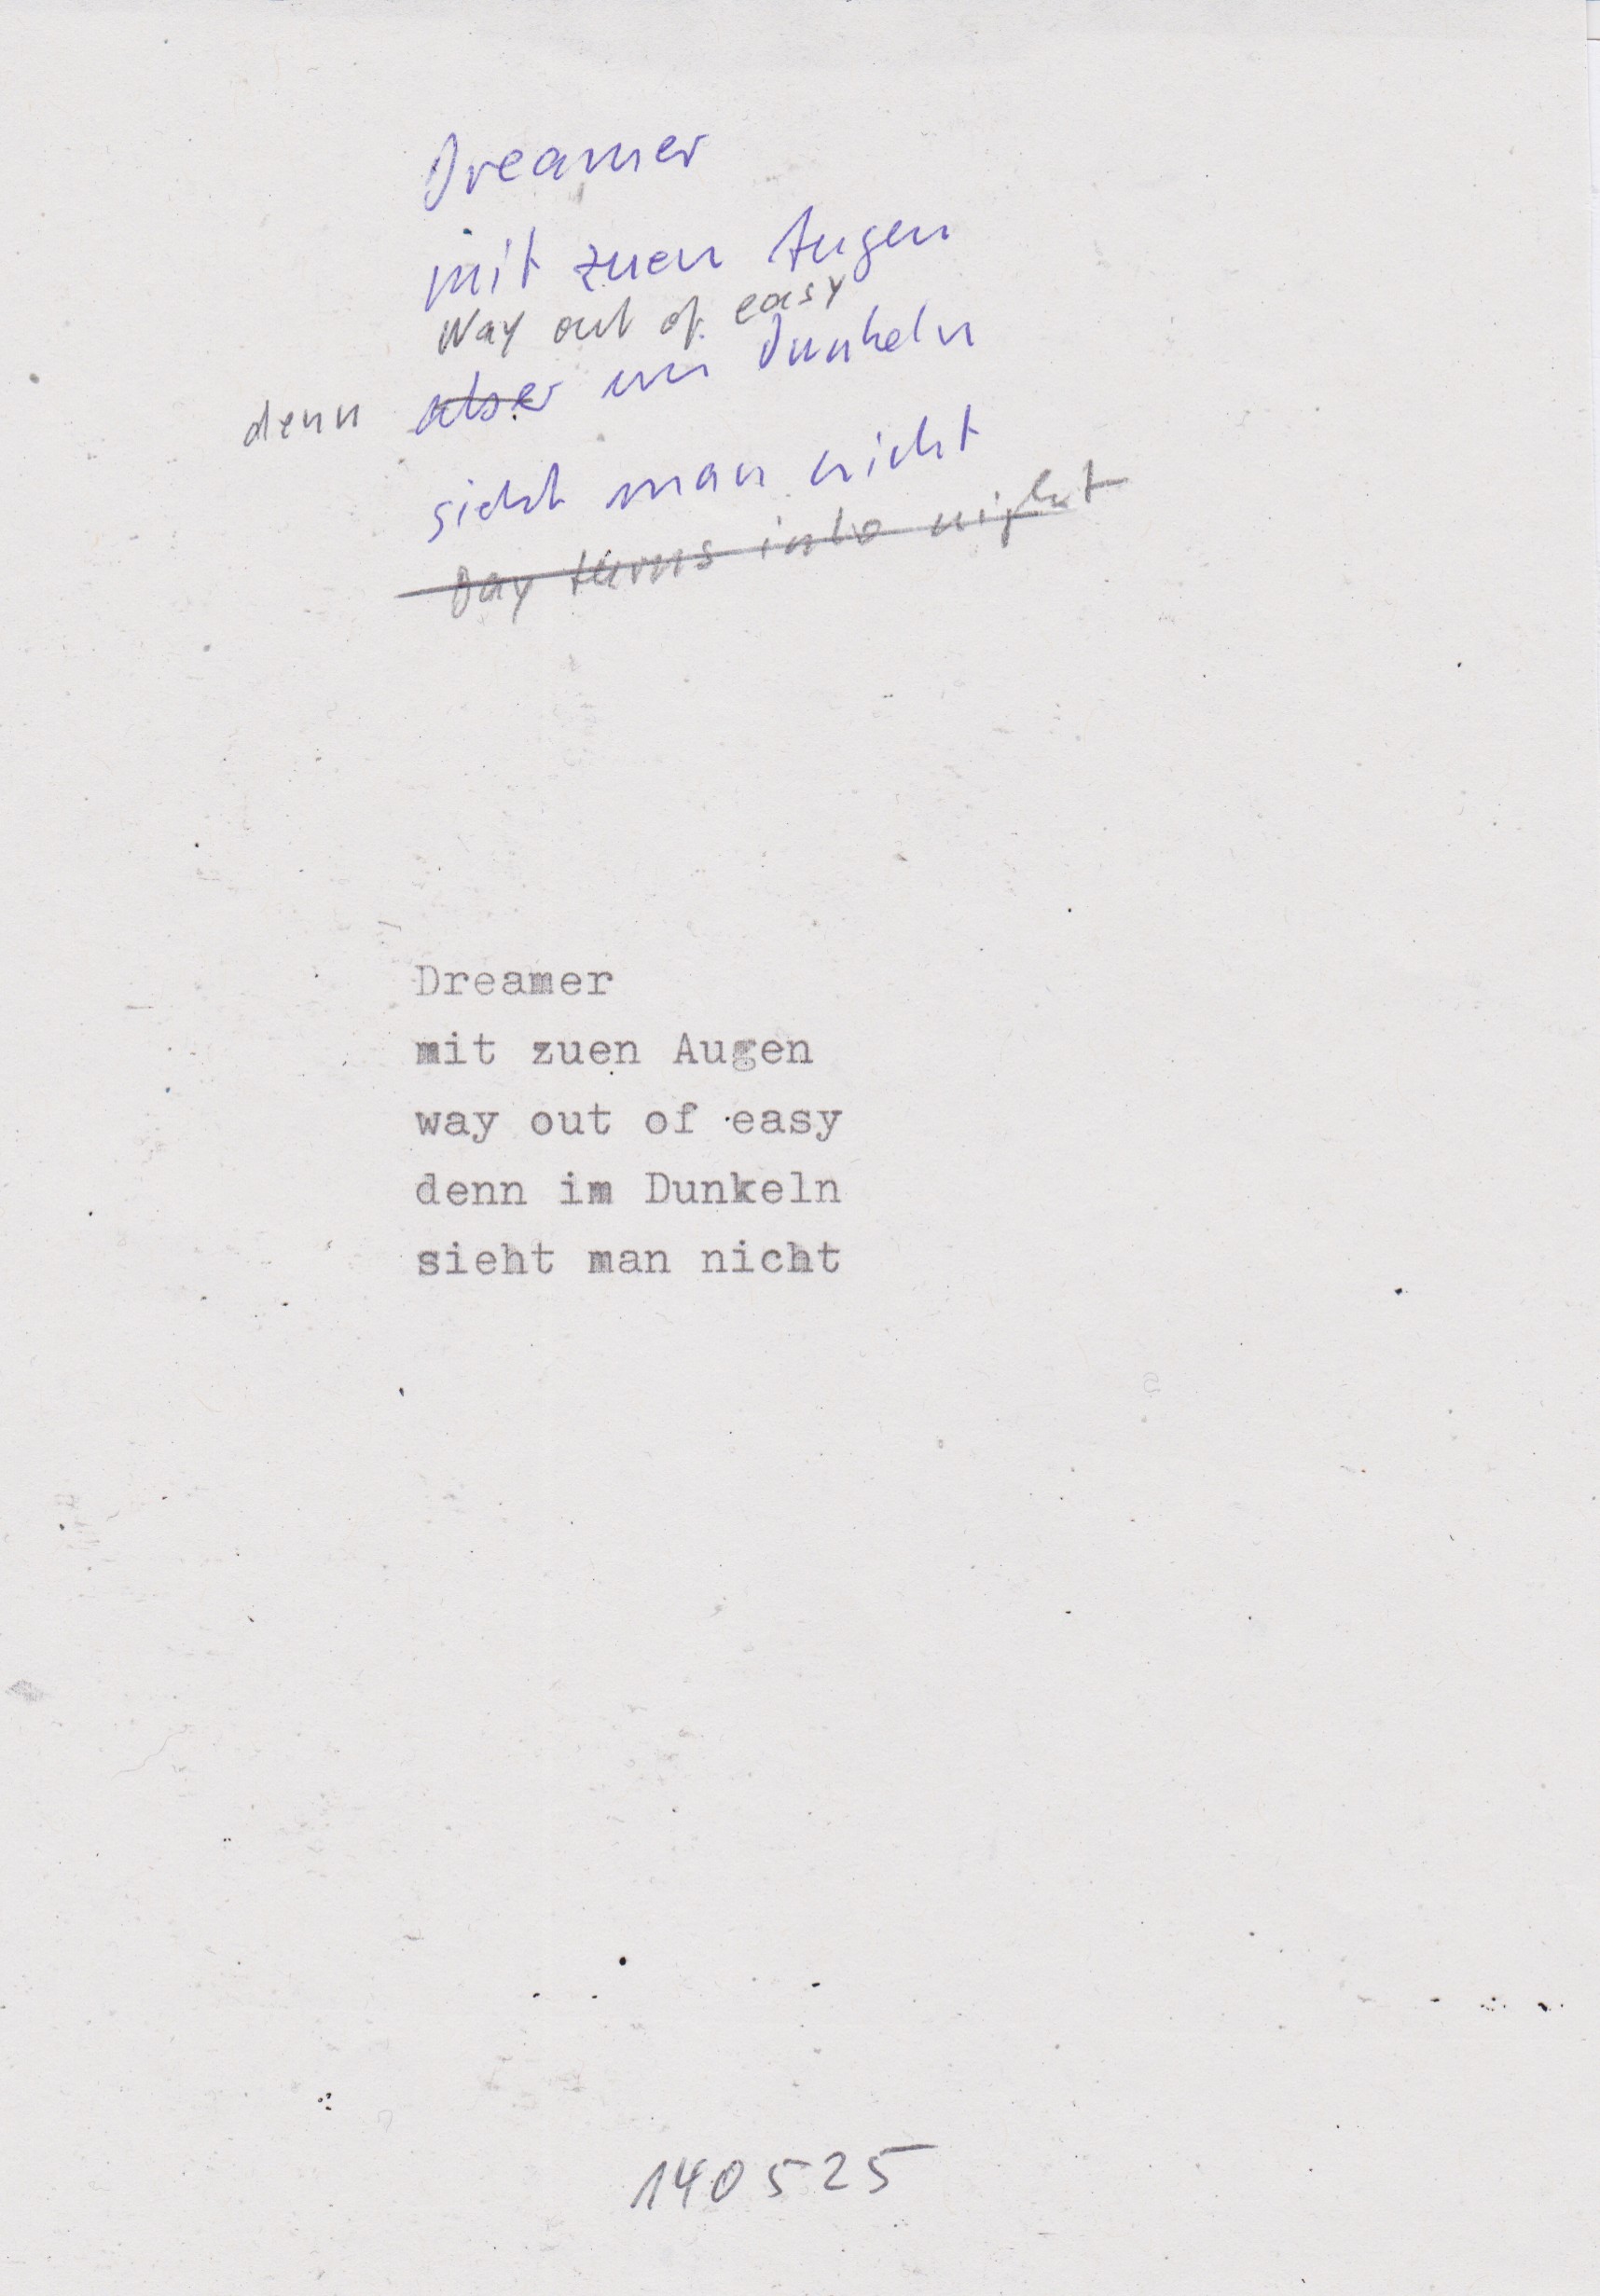 Dreamer
mit zuen Augen
Way out of easy
denn aber im Dunkeln
sieht man nicht
Day turns into night
Dreamer
mit zuen Augen
way out of easy
denn im Dunkeln
sieht man nicht
140525